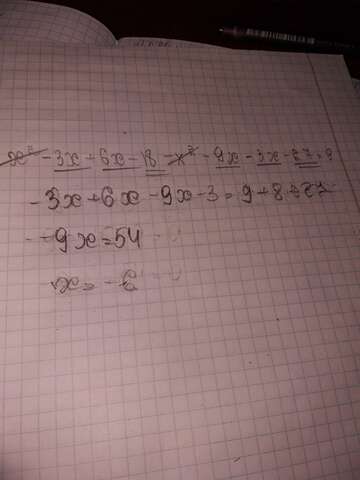 x² - 3x + 6x - 18 - x² - 9x - 3x - 27 = 9
- 3x + 6x - 9x - 3 = 9 + 8 + 27
- 9x = 54
x = - 6